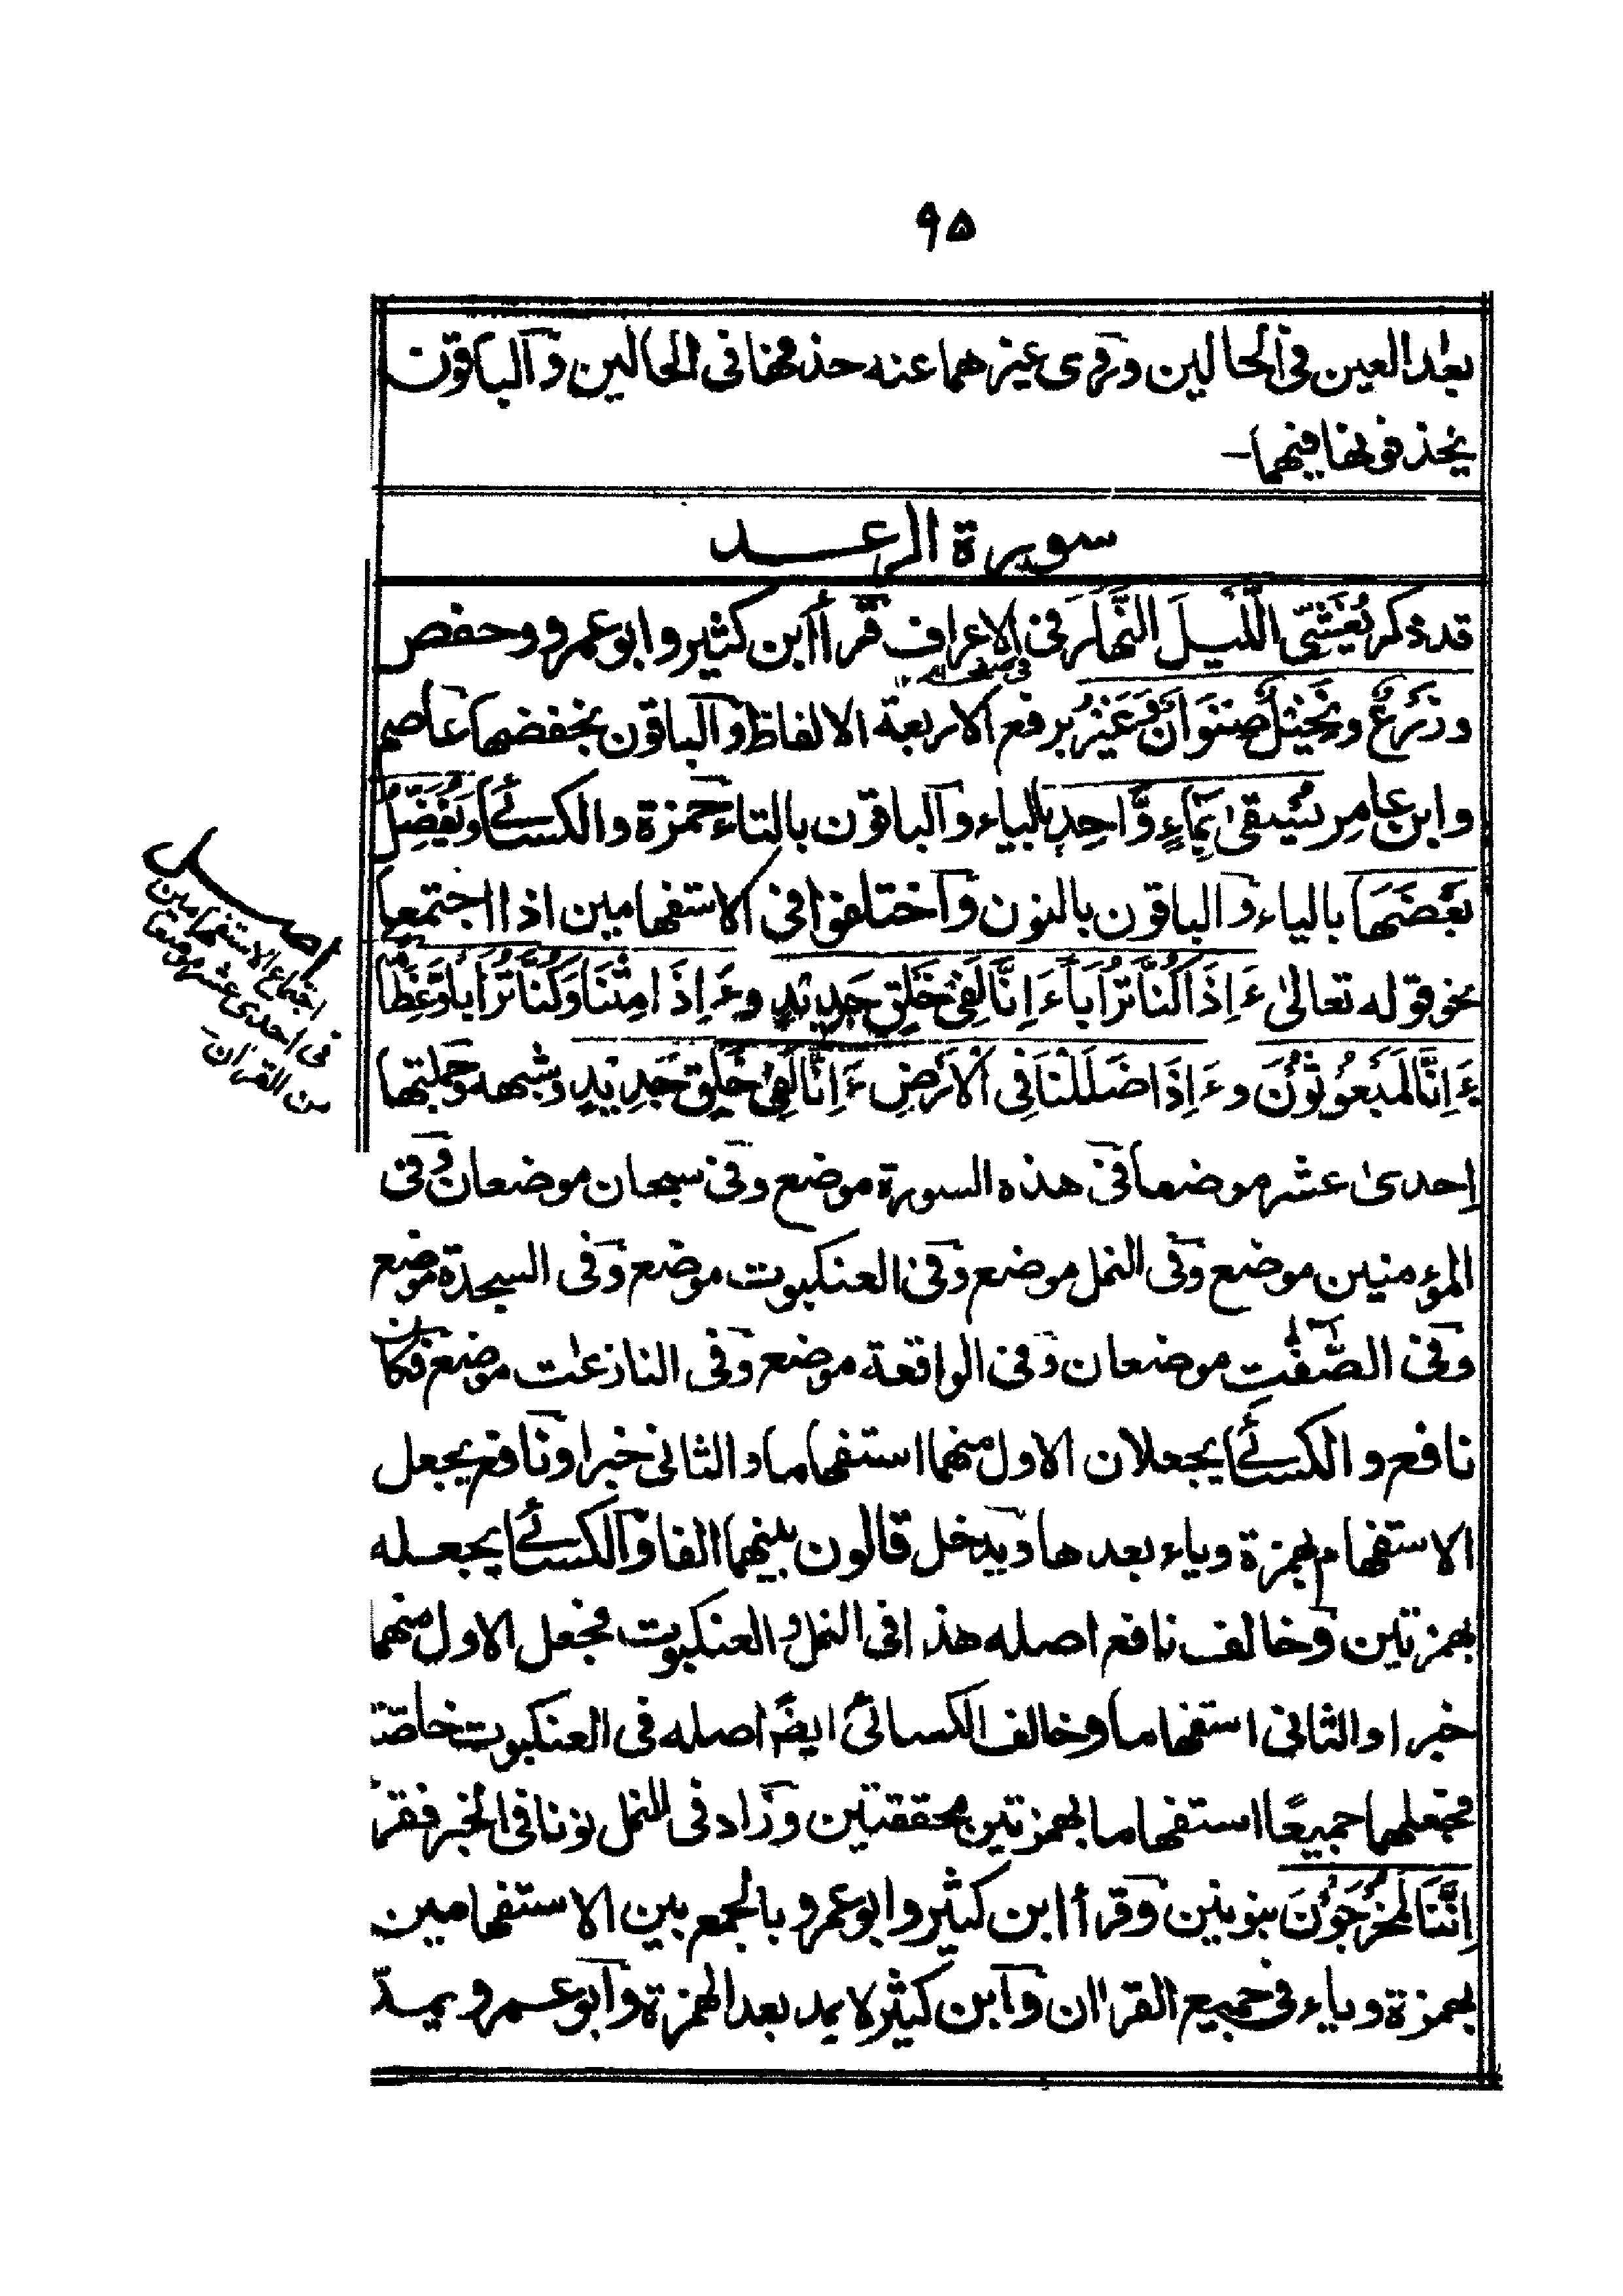 ۹۵
بعد العين فى الحالين وروى غيرهما عنه حذفها فى الحالين والباقون
يحذفونها فيهما-
سورة الرعد
قد ذكر يُغْشِى اللَّيلَ النَّهارَ فى الاعراف قرأ ابن كثير وابو عمرو وحفص
فى صفحه
وزَرْعٌ ونَخِيْلٌ صِنْوَانٌ وَّغَيْرُ برفع الاربعة الالفاظ والباقون بخفضها عاصم
وابن عامر يُسْقىٰ بِمَاءٍ وَّاحِدٍ بالياء والباقون بالتاء حمزة والكسائے ويُفَضِّلُ
بَعْضَهَا بالياء والباقون بالنون واختلفوا فى الاستفهامين اذا اجتمعا
نحو قوله تعالىٰ ءَاِذَا كُنَّا تُرَاباً ءَاِنَّا لَفِىْ خَلْقٍ جَدِيْدٍ وءَاِذَا مِتْنَا وَكُنَّا تُرَاباً وَّعِظَاماً
ءَاِنَّا لَمَبْعُوْثُوْنَ وءَاِذَا ضَلَلْنَا فِى الْاَرْضِ ءَاِنَّا لَفِىْ خَلْقٍ جَدِيْدٍ وشبهه وجملتها
اِحدىٰ عشر موضعا فى هذه السورة موضع وفى سبحان موضعان وفى
المؤمنين موضع وفى النمل موضع وفى العنكبوت موضع وفى السجدة موضع
وفى الصّٰفّٰت موضعان وفى الواقعة موضع وفى النازعٰت موضع فكان
نافع والكسائے يجعلان الاول منهما استفهاما والثانى خبرا ونافع يجعل
الاستفهام بهمزة وياء بعدها ويدخل قالون بينهما الفا والكسائے يجعله
بهمزتين وخالف نافع اصله هذا فى النمل والعنكبوت فجعل الاول منهما
خبرا والثانى استفهاما وخالف الكسائى ايضًا اصله فى العنكبوت خاصة
فجعلهما جميعًا استفهاما بهمزتين محققتين وزاد فى النمل نونا فى الخبر فقرأ
اِنَّنَا لَمُخْرَجُوْنَ بنونين وقرأ ابن كثير وابو عمرو بالجمع بين الاستفهامين
بهمزة وياء فى جميع القراٰن وابن كثير لا يمد بعد الهمزة وابو عمرو يمدّ
اصل
اجتماع الاستفهامين
فى احدى عشر موضعا
من القراٰن-